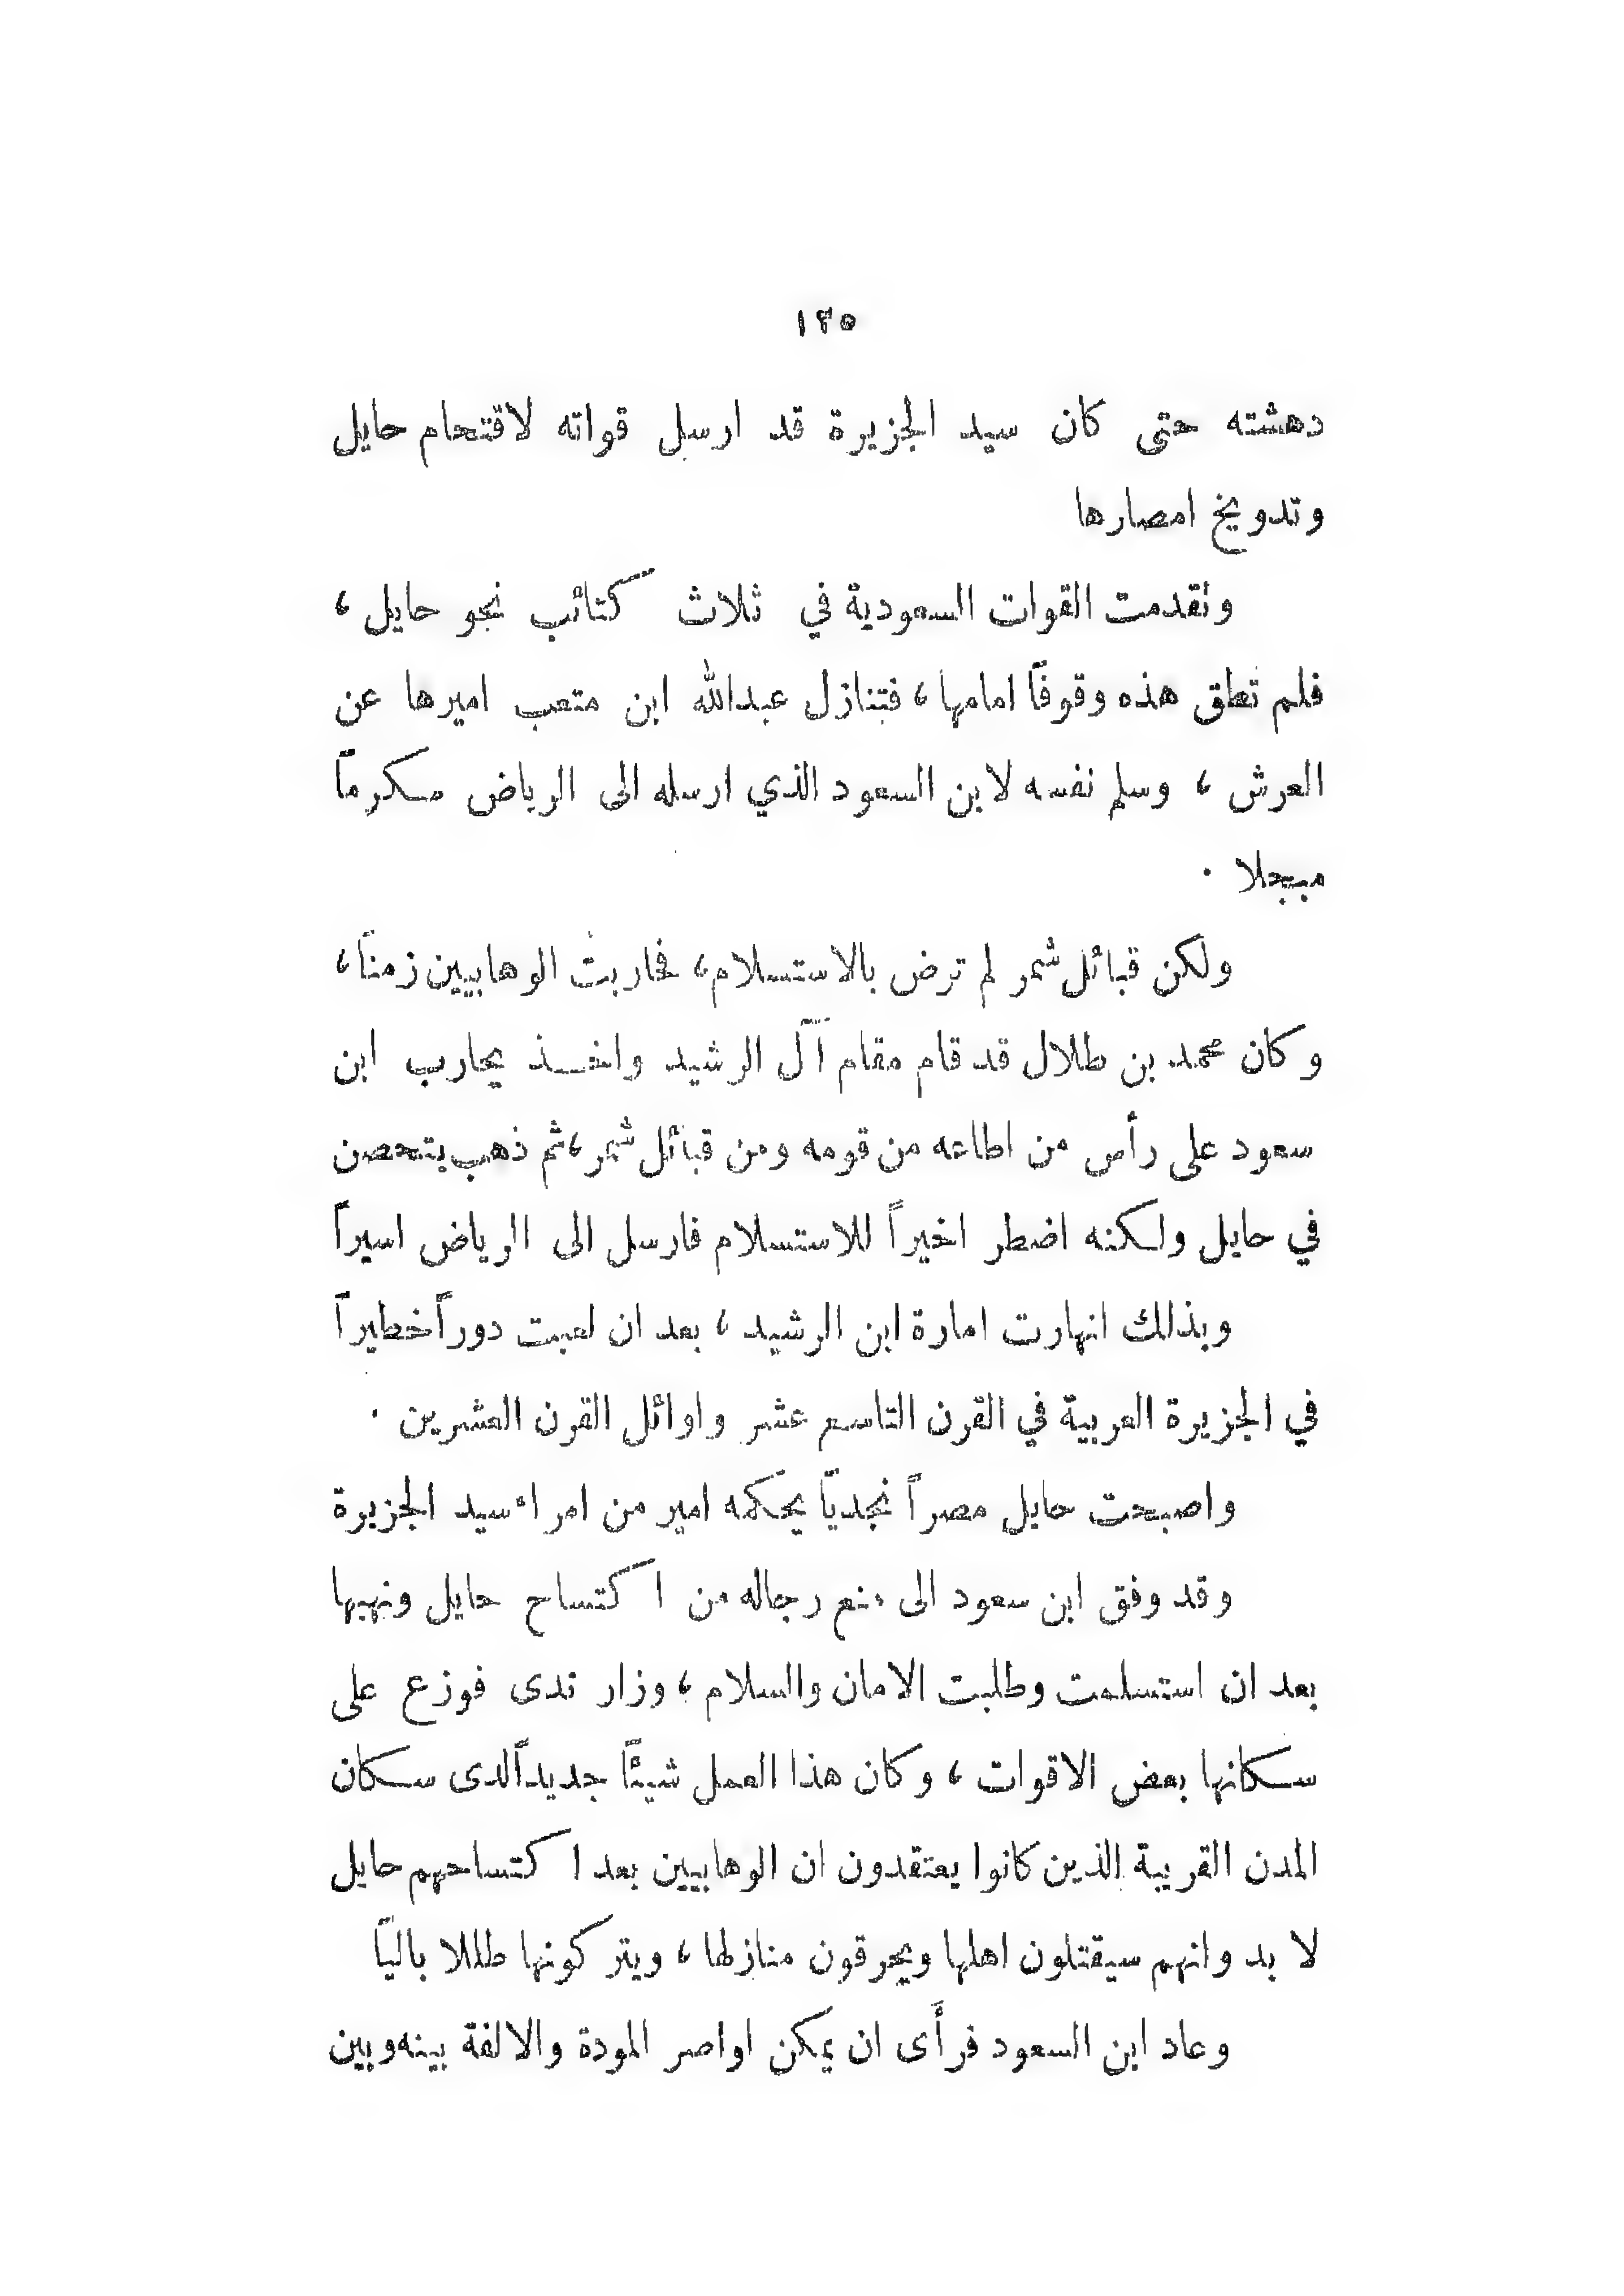 ١٢٥
دهشته حتى كان سيد الجزيرة قد ارسل قواته لاقتحام حايل
وتدويخ امصارها
وتقدمت القوات السعودية في ثلاث كتائب نحو حايل ،
فلم تطق هذه وقوفاً امامها ، فتنازل عبدالله ابن متعب اميرها عن
العرش ، وسلم نفسه لابن السعود الذي ارسله الى الرياض مكرماً
مبجلا .
ولكن قبائل شمر لم ترض بالاستسلام ، فحاربت الوهابيين زمناً ،
وكان محمد بن طلال قد قام مقام آل الرشيد واخذ يحارب ابن
سعود على رأس من اطاعه من قومه ومن قبائل شمر ، ثم ذهب يتحصن
في حايل ولكنه اضطر اخيراً للاستسلام فارسل الى الرياض اسيراً
وبذلك انهارت امارة ابن الرشيد ، بعد ان لعبت دوراً خطيراً
في الجزيرة العربية في القرن التاسع عشر واوائل القرن العشرين .
واصبحت حايل مصراً نجدياً يحكمه امير من امراء سيد الجزيرة
وقد وفق ابن سعود الى منع رجاله من اكتساح حايل ونهبها
بعد ان استسلمت وطلبت الامان والسلام ، وزار ندى فوزع على
سكانها بعض الاقوات ، وكان هذا العمل شيئاً جديداً لدى سكان
المدن القريبة الذين كانوا يعتقدون ان الوهابيين بعد اكتساحهم حايل
لا بد وانهم سيقتلون اهلها ويحرقون منازلها ، ويتركونها طللا بالياً
وعاد ابن السعود فرأى ان يمكن اواصر المودة والالفة بينه وبين